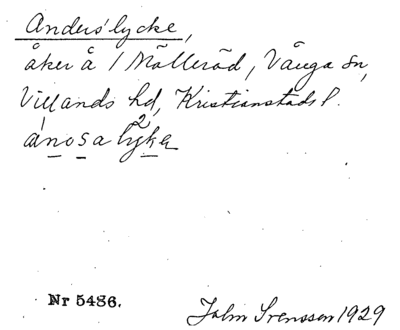 Anders'lycke,
åker å 1 Mölleröd, Vånga sn,
Villands hd, Kristianstads l.
anosa lyka
Nr 5486.
John Svensson 1929